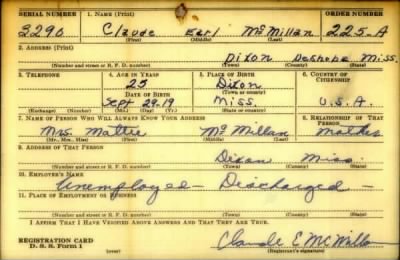 SERIAL NUMBER 1. NAME (Print) ORDER NUMBER
2290 Claude Earl McMillan 225-A
(First) (Middle) (Last)
2. ADDRESS (Print)
Dixon Neshoba Miss.
(Number and street or R. F. D. number) (Town) (County) (State)
3. TELEPHONE 4. AGE IN YEARS 5. PLACE OF BIRTH 6. COUNTRY OF CITIZENSHIP
Dixon
(Town or county)
DATE OF BIRTH
Sept 29-19 Miss. U.S.A.
(Exchange) (Number) (Mo.) (Day) (Yr.) (State or country)
7. NAME OF PERSON WHO WILL ALWAYS KNOW YOUR ADDRESS 8. RELATIONSHIP OF THAT PERSON
Mrs. Mattie McMillan Mother
(Mr., Mrs., Miss) (First) (Middle) (Last)
9. ADDRESS OF THAT PERSON
Dixon Miss.
(Number and street or R. F. D. number) (Town) (County) (State)
10. EMPLOYER'S NAME
Unemployed - Discharged -
11. PLACE OF EMPLOYMENT OR BUSINESS
(Number and street or R. F. D. number) (Town) (County) (State)
I AFFIRM THAT I HAVE VERIFIED ABOVE ANSWERS AND THAT THEY ARE TRUE.
REGISTRATION CARD
D. S. S. Form 1
Claude E McMillan
(Registrant's signature)